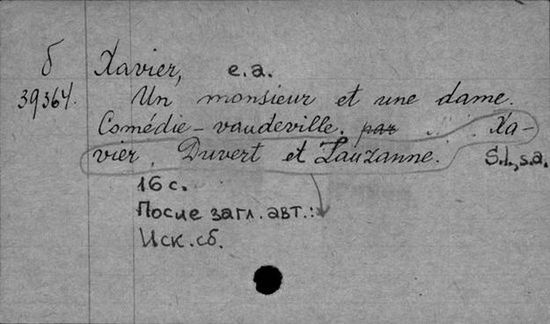 б Xavier, e.a.
39364. Un monsieur et une dame.
Comédie-vaudeville. par Xa-
vier, Duvert et Lauzanne. S.l., s.a.
16 с.
После загл. авт.:
Иск. сб.